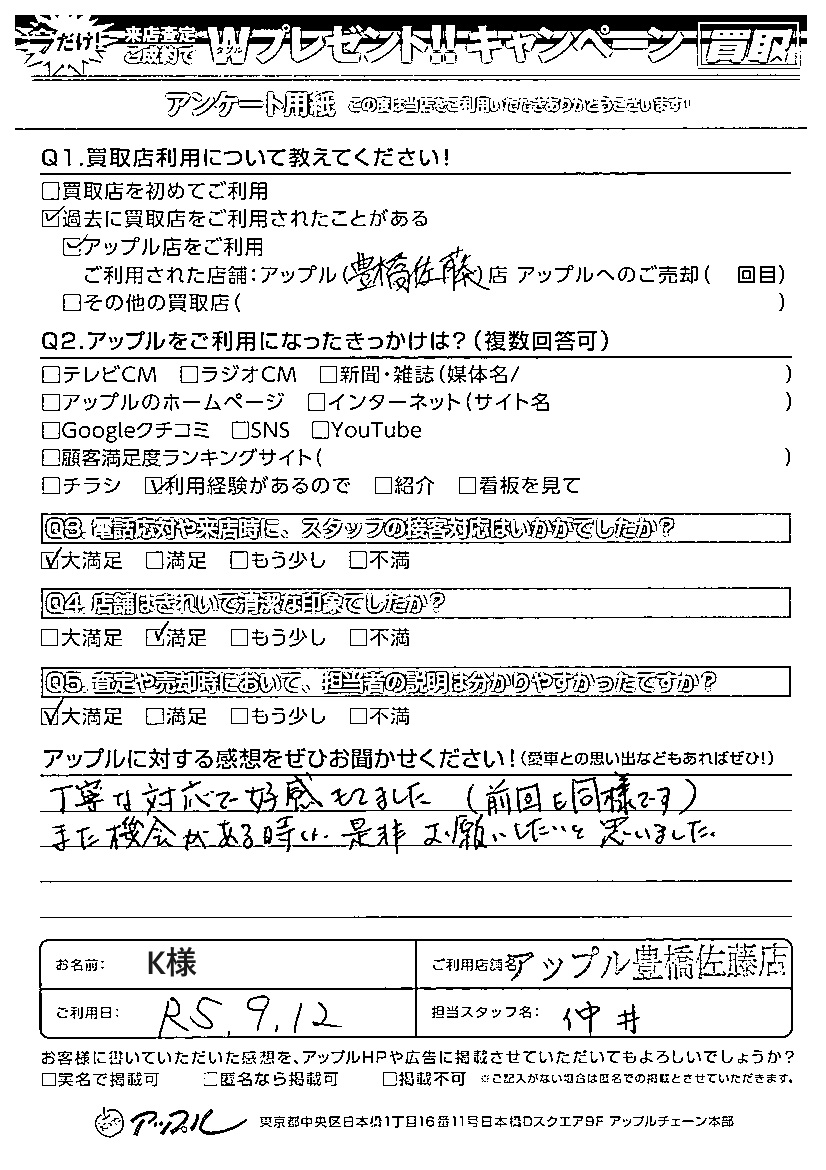 だけ! 来店査定 ご成約で Wプレゼント!! キャンペーン 買取
アンケート用紙 この度は当店をご利用いただきありがとうございます!!
Q1.買取店利用について教えてください!
□買取店を初めてご利用
☑過去に買取店をご利用されたことがある
☑アップル店をご利用
ご利用された店舗:アップル(豊橋佐藤)店 アップルへのご売却( 回目)
□その他の買取店( )
Q2.アップルをご利用になったきっかけは?(複数回答可)
□テレビCM □ラジオCM □新聞・雑誌(媒体名/ )
□アップルのホームページ □インターネット(サイト名 )
□Googleクチコミ □SNS □YouTube
□顧客満足度ランキングサイト( )
□チラシ ☑利用経験があるので □紹介 □看板を見て
Q3.電話応対や来店時に、スタッフの接客対応はいかがでしたか?
☑大満足 □満足 □もう少し □不満
Q4.店舗はきれいで清潔な印象でしたか?
□大満足 ☑満足 □もう少し □不満
Q5.査定や売却時において、担当者の説明は分かりやすかったですか?
☑大満足 □満足 □もう少し □不満
アップルに対する感想をぜひお聞かせください!(愛車との思い出などもあればぜひ!)
丁寧な対応で好感もてました(前回も同様です)
また機会がある時は、是非お願いしたいと思いました。
お名前: K様 ご利用店舗名 アップル豊橋佐藤店
ご利用日: R5.9.12 担当スタッフ名: 仲井
お客様に書いていただいた感想を、アップルHPや広告に掲載させていただいてもよろしいでしょうか?
□実名で掲載可 □匿名なら掲載可 □掲載不可 ※ご記入がない場合は匿名での掲載とさせていただきます。
アップル 東京都中央区日本橋1丁目16番11号日本橋Dスクエア9F アップルチェーン本部